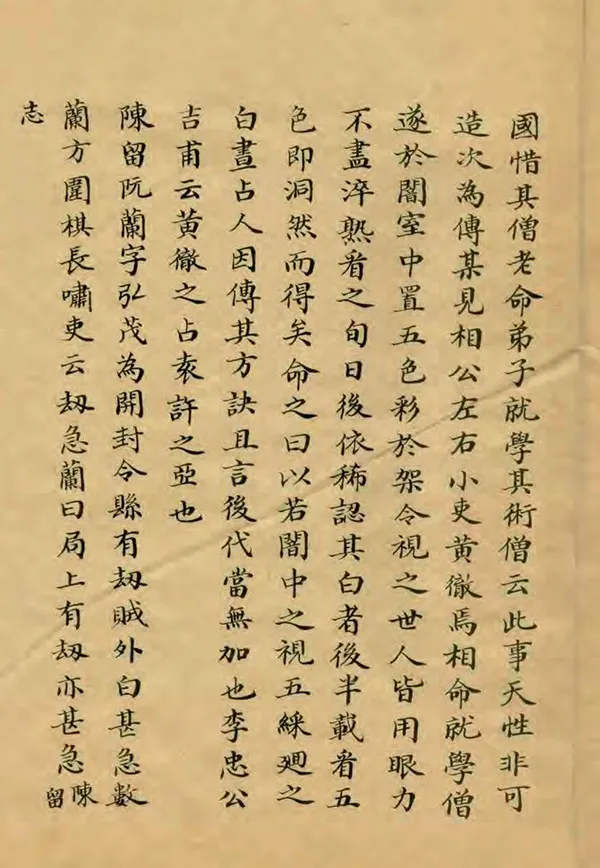 國惜其僧老命弟子就學其術僧云此事天性非可
造次為傳某見相公左右小吏黃徹焉相命就學僧
遂於闇室中置五色彩於架令視之世人皆用眼力
不盡淬熟看之旬日後依稀認其白者後半載看五
色即洞然而得矣命之曰以若闇中之視五綵迴之
白晝占人因傳其方訣且言後代當無加也李忠公
吉甫云黃徹之占袁許之亞也
陳留阮蘭字弘茂為開封令縣有刼賊外白甚急數
蘭方圍棋長嘯吏云刼急蘭曰局上有刼亦甚急陳留
志